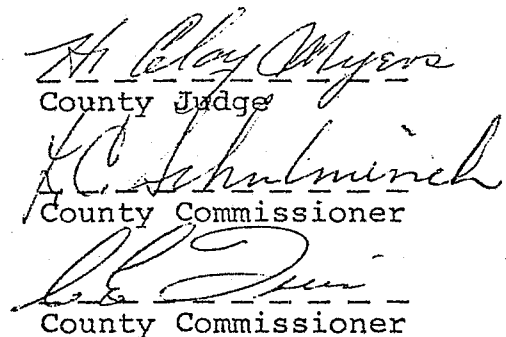 H. Clay Myers
County Judge
County Commissioner
County Commissioner